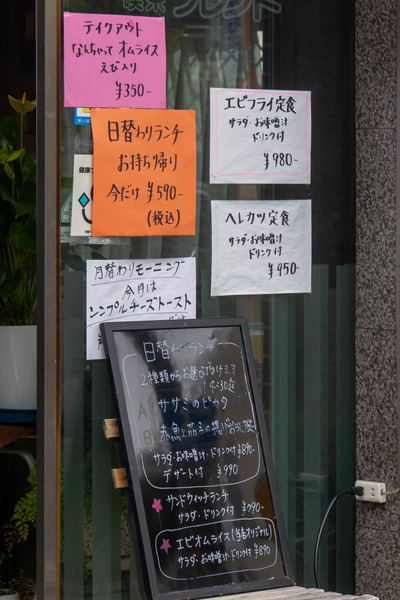 フレンド
テイクアウト
なんちゃって オムライス
えび入り
¥350-
日替わりランチ
お持ち帰り
今だけ ¥590-
(税込)
エビフライ定食
サラダ・お味噌汁
ドリンク付
¥980-
ヘレカツ定食
サラダ・お味噌汁
ドリンク付
¥950-
月替わりモーニング
今月は
シンプルチーズトースト
日替わりランチ
2種類からお選び頂けます
14:30迄
A ササミのピカタ
B 煮魚と
サラダ・お味噌汁・ドリンク付 ¥890-
デザート付 ¥990
サンドウィッチランチ
サラダ・ドリンク付 ¥790-
エビオムライス(当店オリジナル)
サラダ・お味噌汁・ドリンク付 ¥890